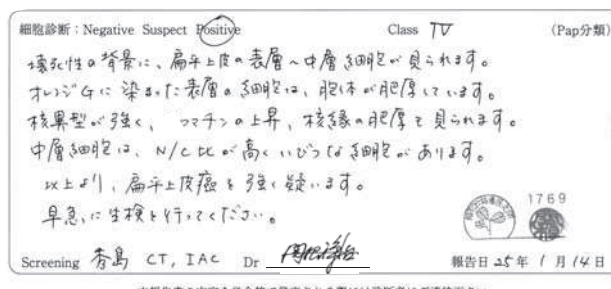 細胞診断：Negative Suspect Positive Class IV (Pap分類)
壊死性の背景に、扁平上皮の表層〜中層細胞が見られます。
オレンジGに染まった表層の細胞は、胞体が肥厚しています。
核異型が強く、クロマチンの上昇、核縁の肥厚も見られます。
中層細胞は、N/C比が高くいびつな細胞があります。
以上より、扁平上皮癌を強く疑います。
早急に生検を行ってください。
1769
Screening 秀島 CT, IAC Dr 報告日 25年 1月14日